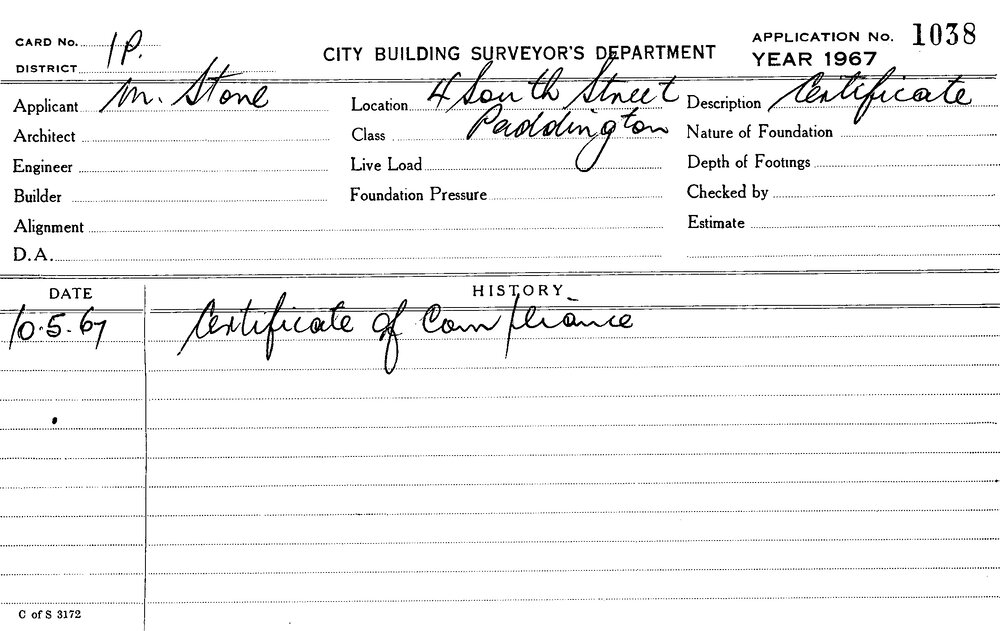 CARD No. 1P. CITY BUILDING SURVEYOR'S DEPARTMENT APPLICATION No. 1038
DISTRICT YEAR 1967
Applicant M. Stone Location 4 South Street Description Certificate
Architect Class Paddington Nature of Foundation
Engineer Live Load Depth of Footings
Builder Foundation Pressure Checked by
Alignment Estimate
D.A.
DATE HISTORY
10.5.67 Certificate of Compliance
C of S 3172